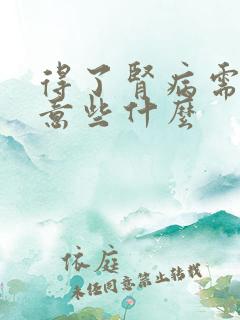 得了腎病需
意些什麼
依庭
未经同意禁止转载